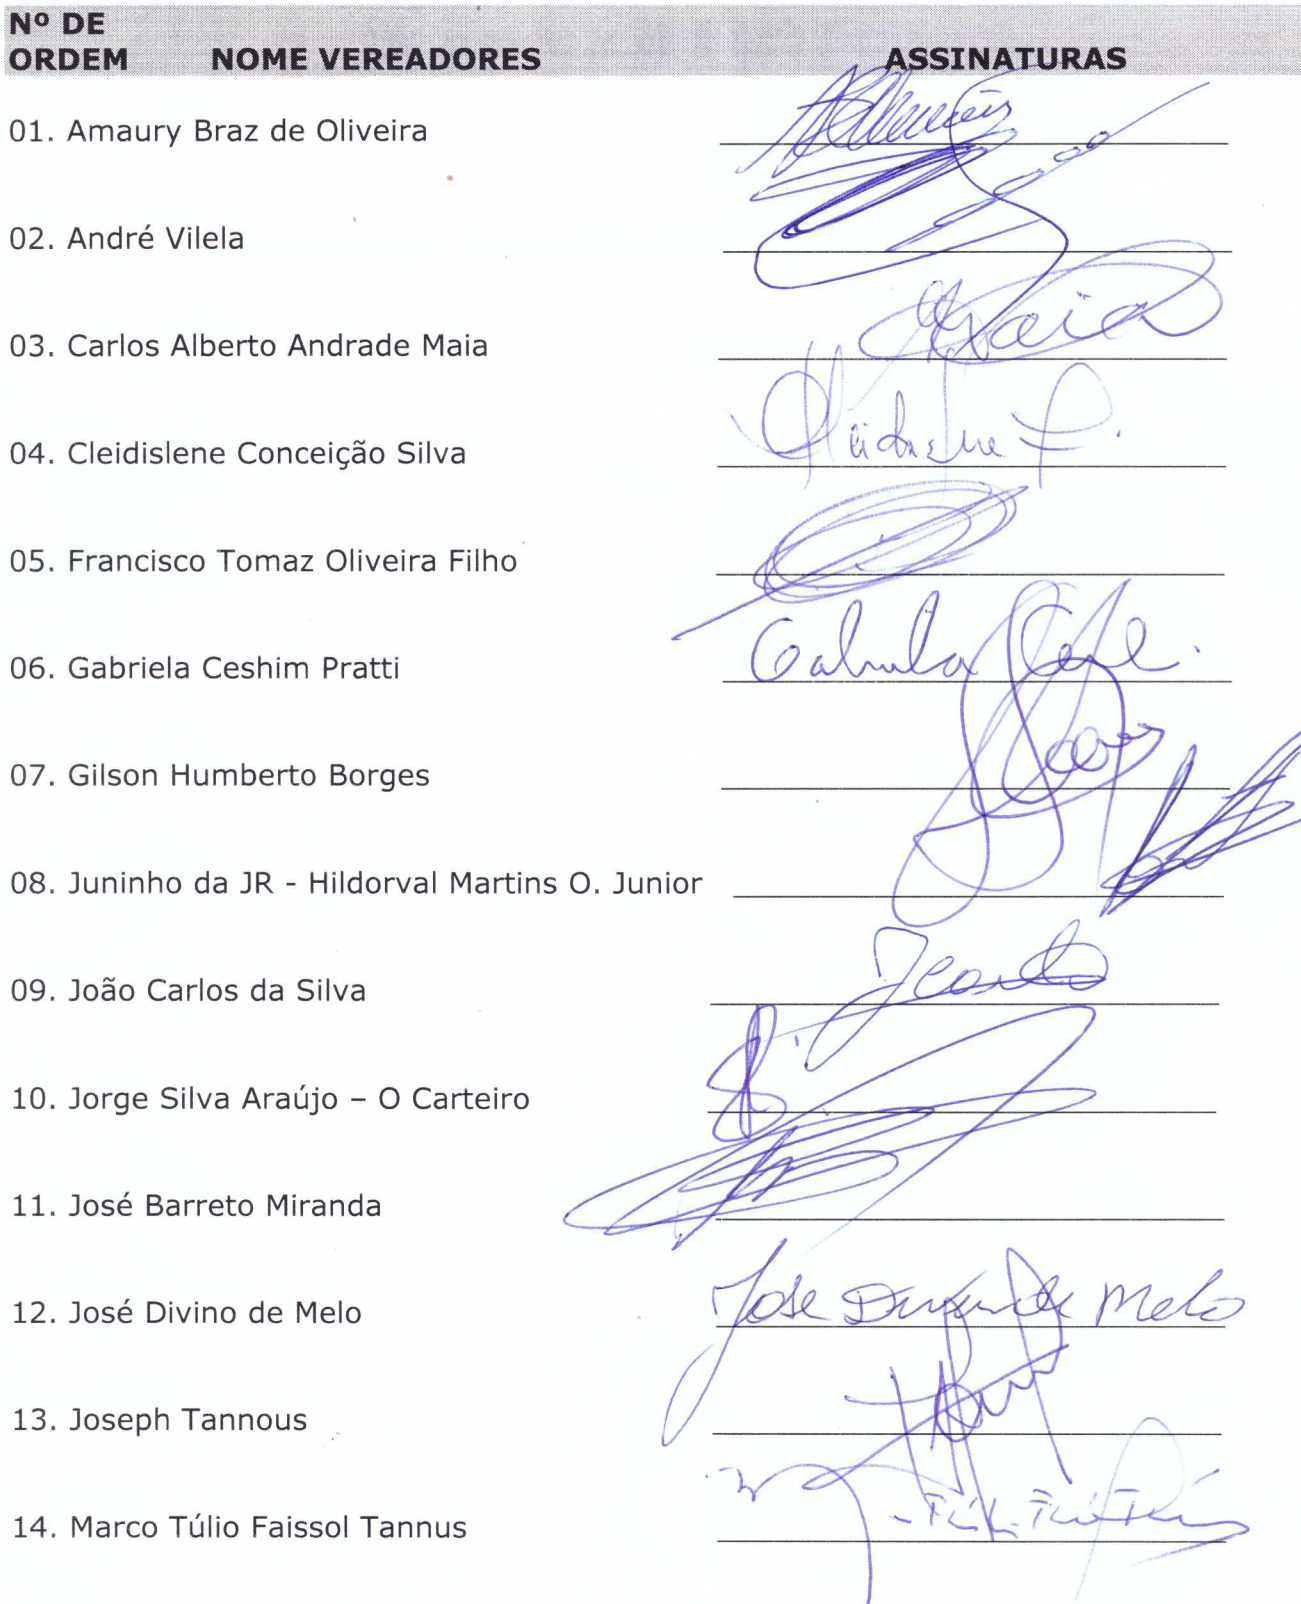 Nº DE
ORDEM NOME VEREADORES ASSINATURAS
01. Amaury Braz de Oliveira
02. André Vilela
03. Carlos Alberto Andrade Maia Maia
04. Cleidislene Conceição Silva
05. Francisco Tomaz Oliveira Filho
06. Gabriela Ceshim Pratti Gabriela
07. Gilson Humberto Borges
08. Juninho da JR - Hildorval Martins O. Junior
09. João Carlos da Silva
10. Jorge Silva Araújo – O Carteiro
11. José Barreto Miranda
12. José Divino de Melo Jose Divino de Melo
13. Joseph Tannous
14. Marco Túlio Faissol Tannus